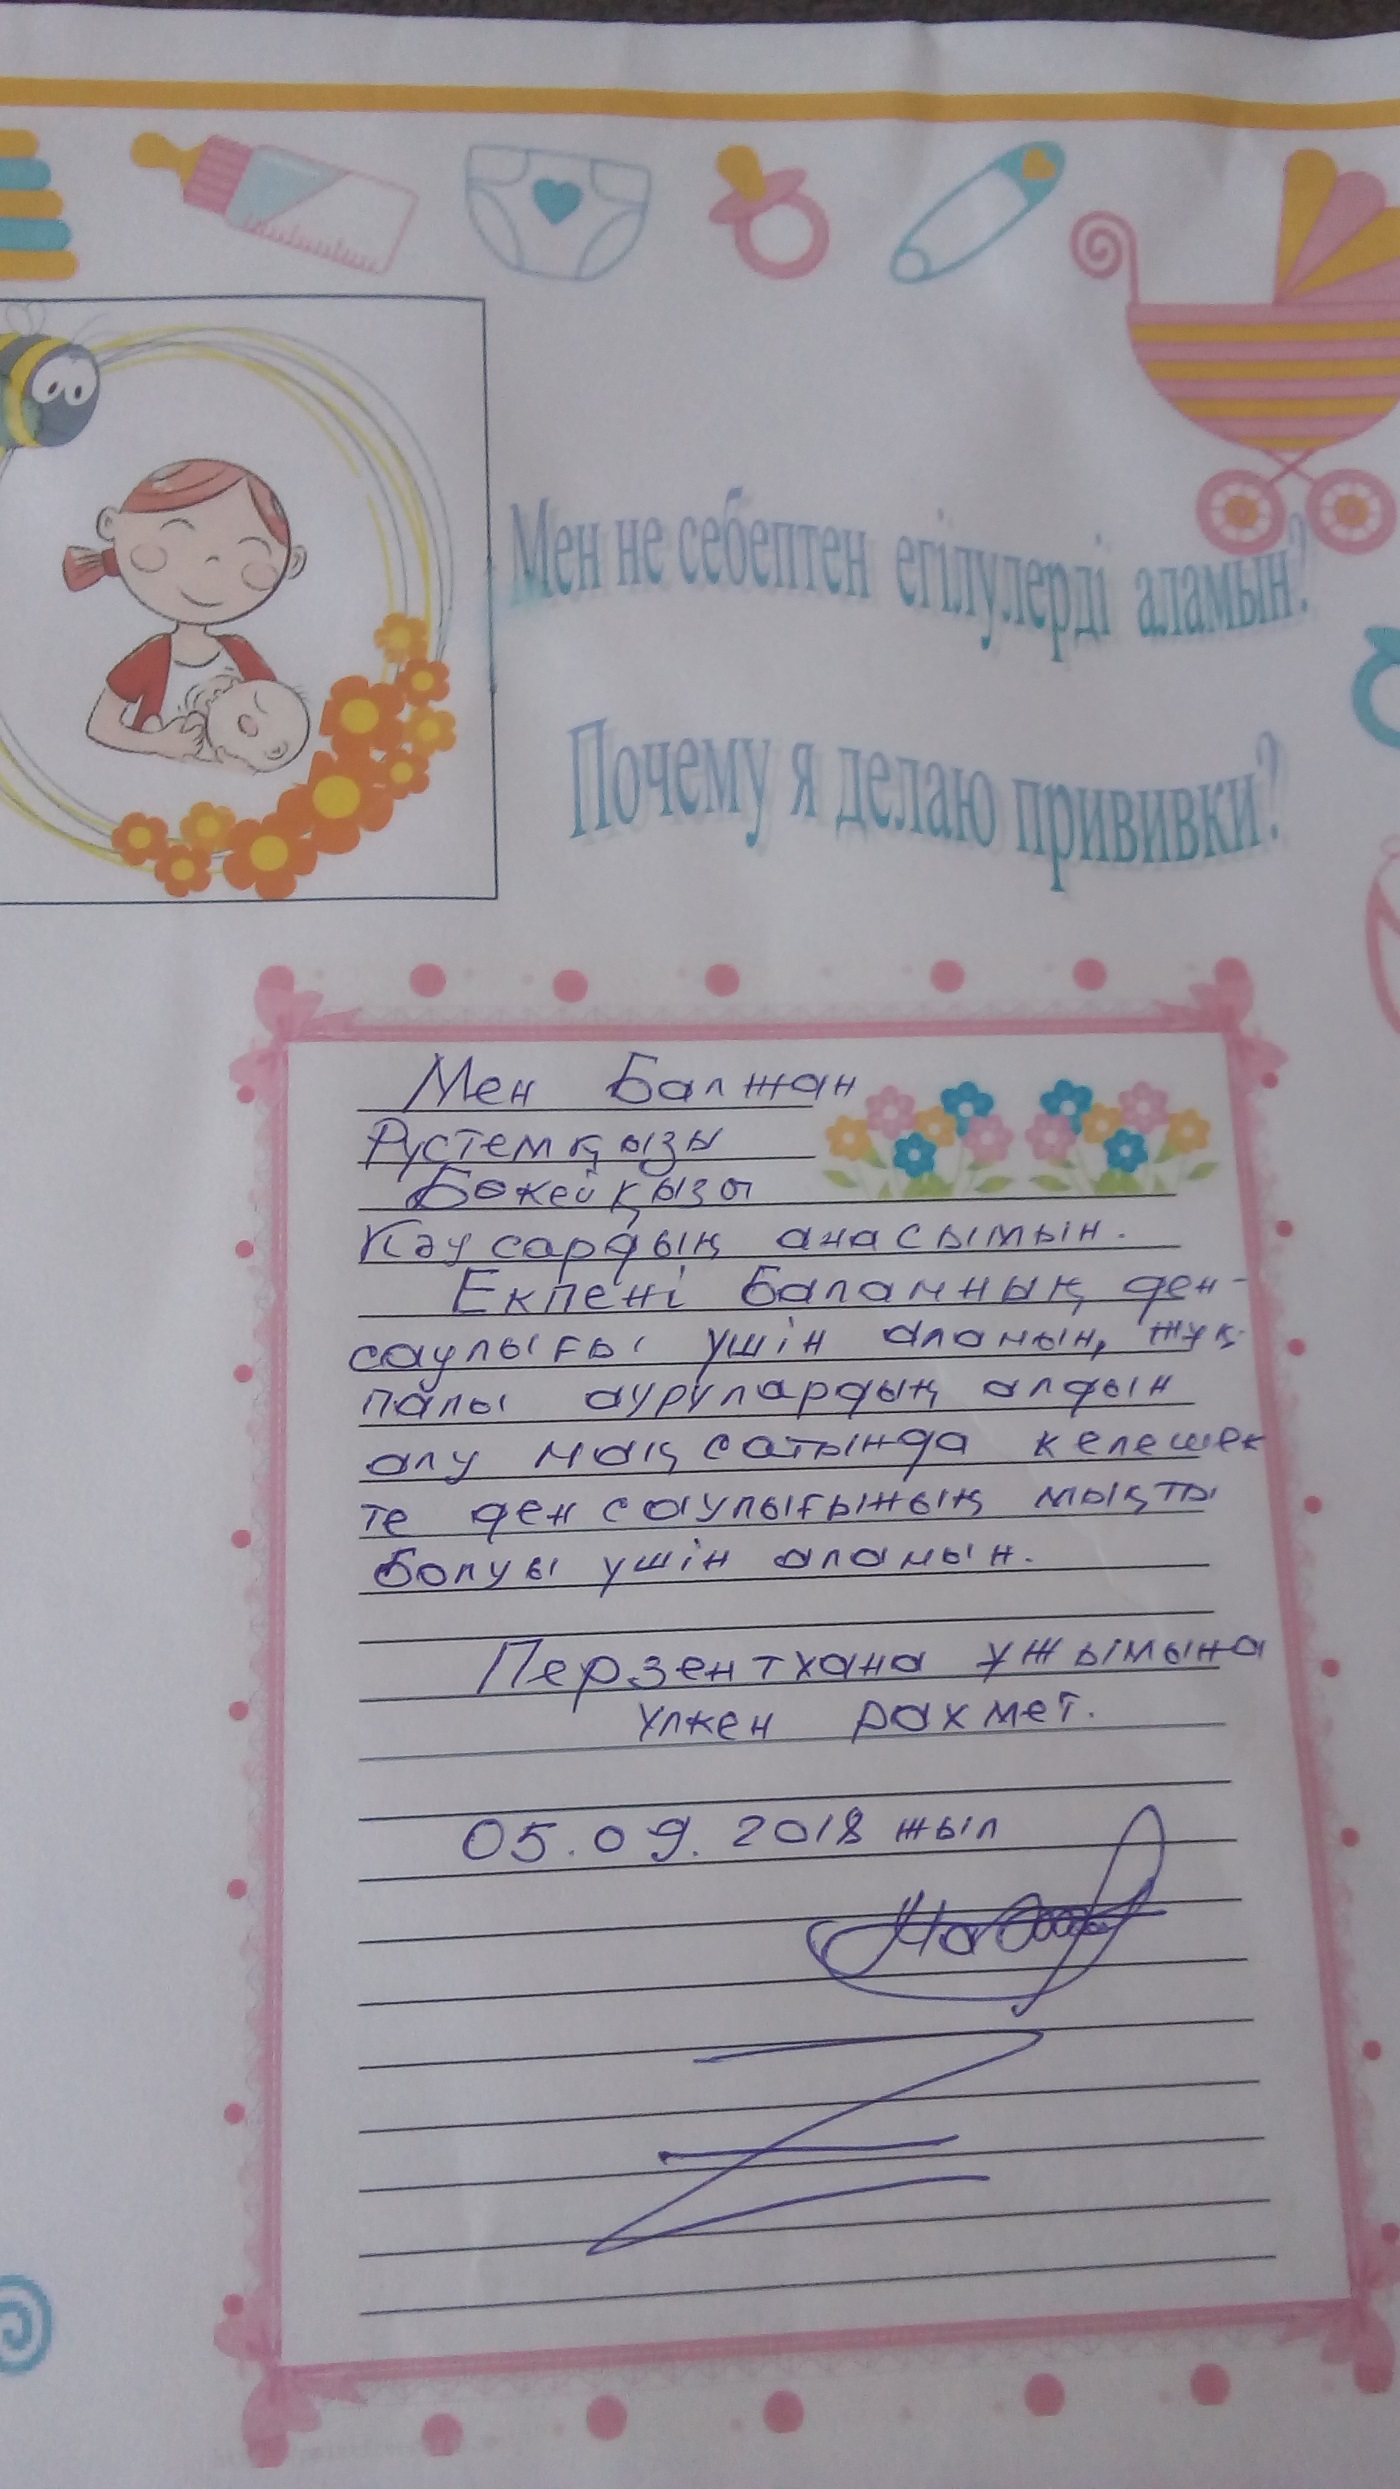 Мен не себептен егілулерді аламын?
Почему я делаю прививки?
Мен Балжан
Рустемқызы
Бөкейқызы
Кәусардың анасымын.
Екпені баламның ден-
саулығы үшін аламын, жұқ-
палы аурулардың алдын
алу мақсатында келешек
те денсаулығының мықты
болуы үшін аламын.
Перзентхана ұжымына
үлкен рахмет.
05.09.2018 жыл